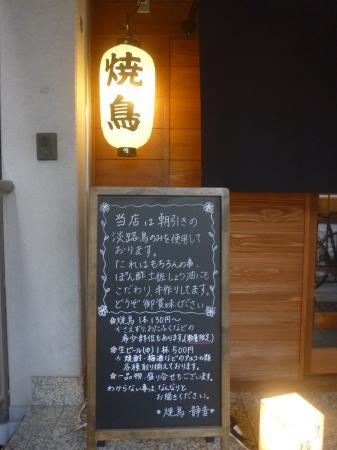 焼鳥
当店は朝引きの
淡路鳥のみを使用して
おります。
たれはもちろんの事、
ぽん酢土佐しょう油にも
こだわり、手作りしてます。
どうぞ御賞味ください
焼鳥 1本130円〜
かさえずり、おたふくなどの
希少部位もあります。(数量限定)
生ビール(中)1杯500円
焼酎・梅酒などのアルコール類
各種取り揃えております。
一品物 盛り合せもございます。
わからない事は、なんなりと
お聞きください。
焼鳥 静香